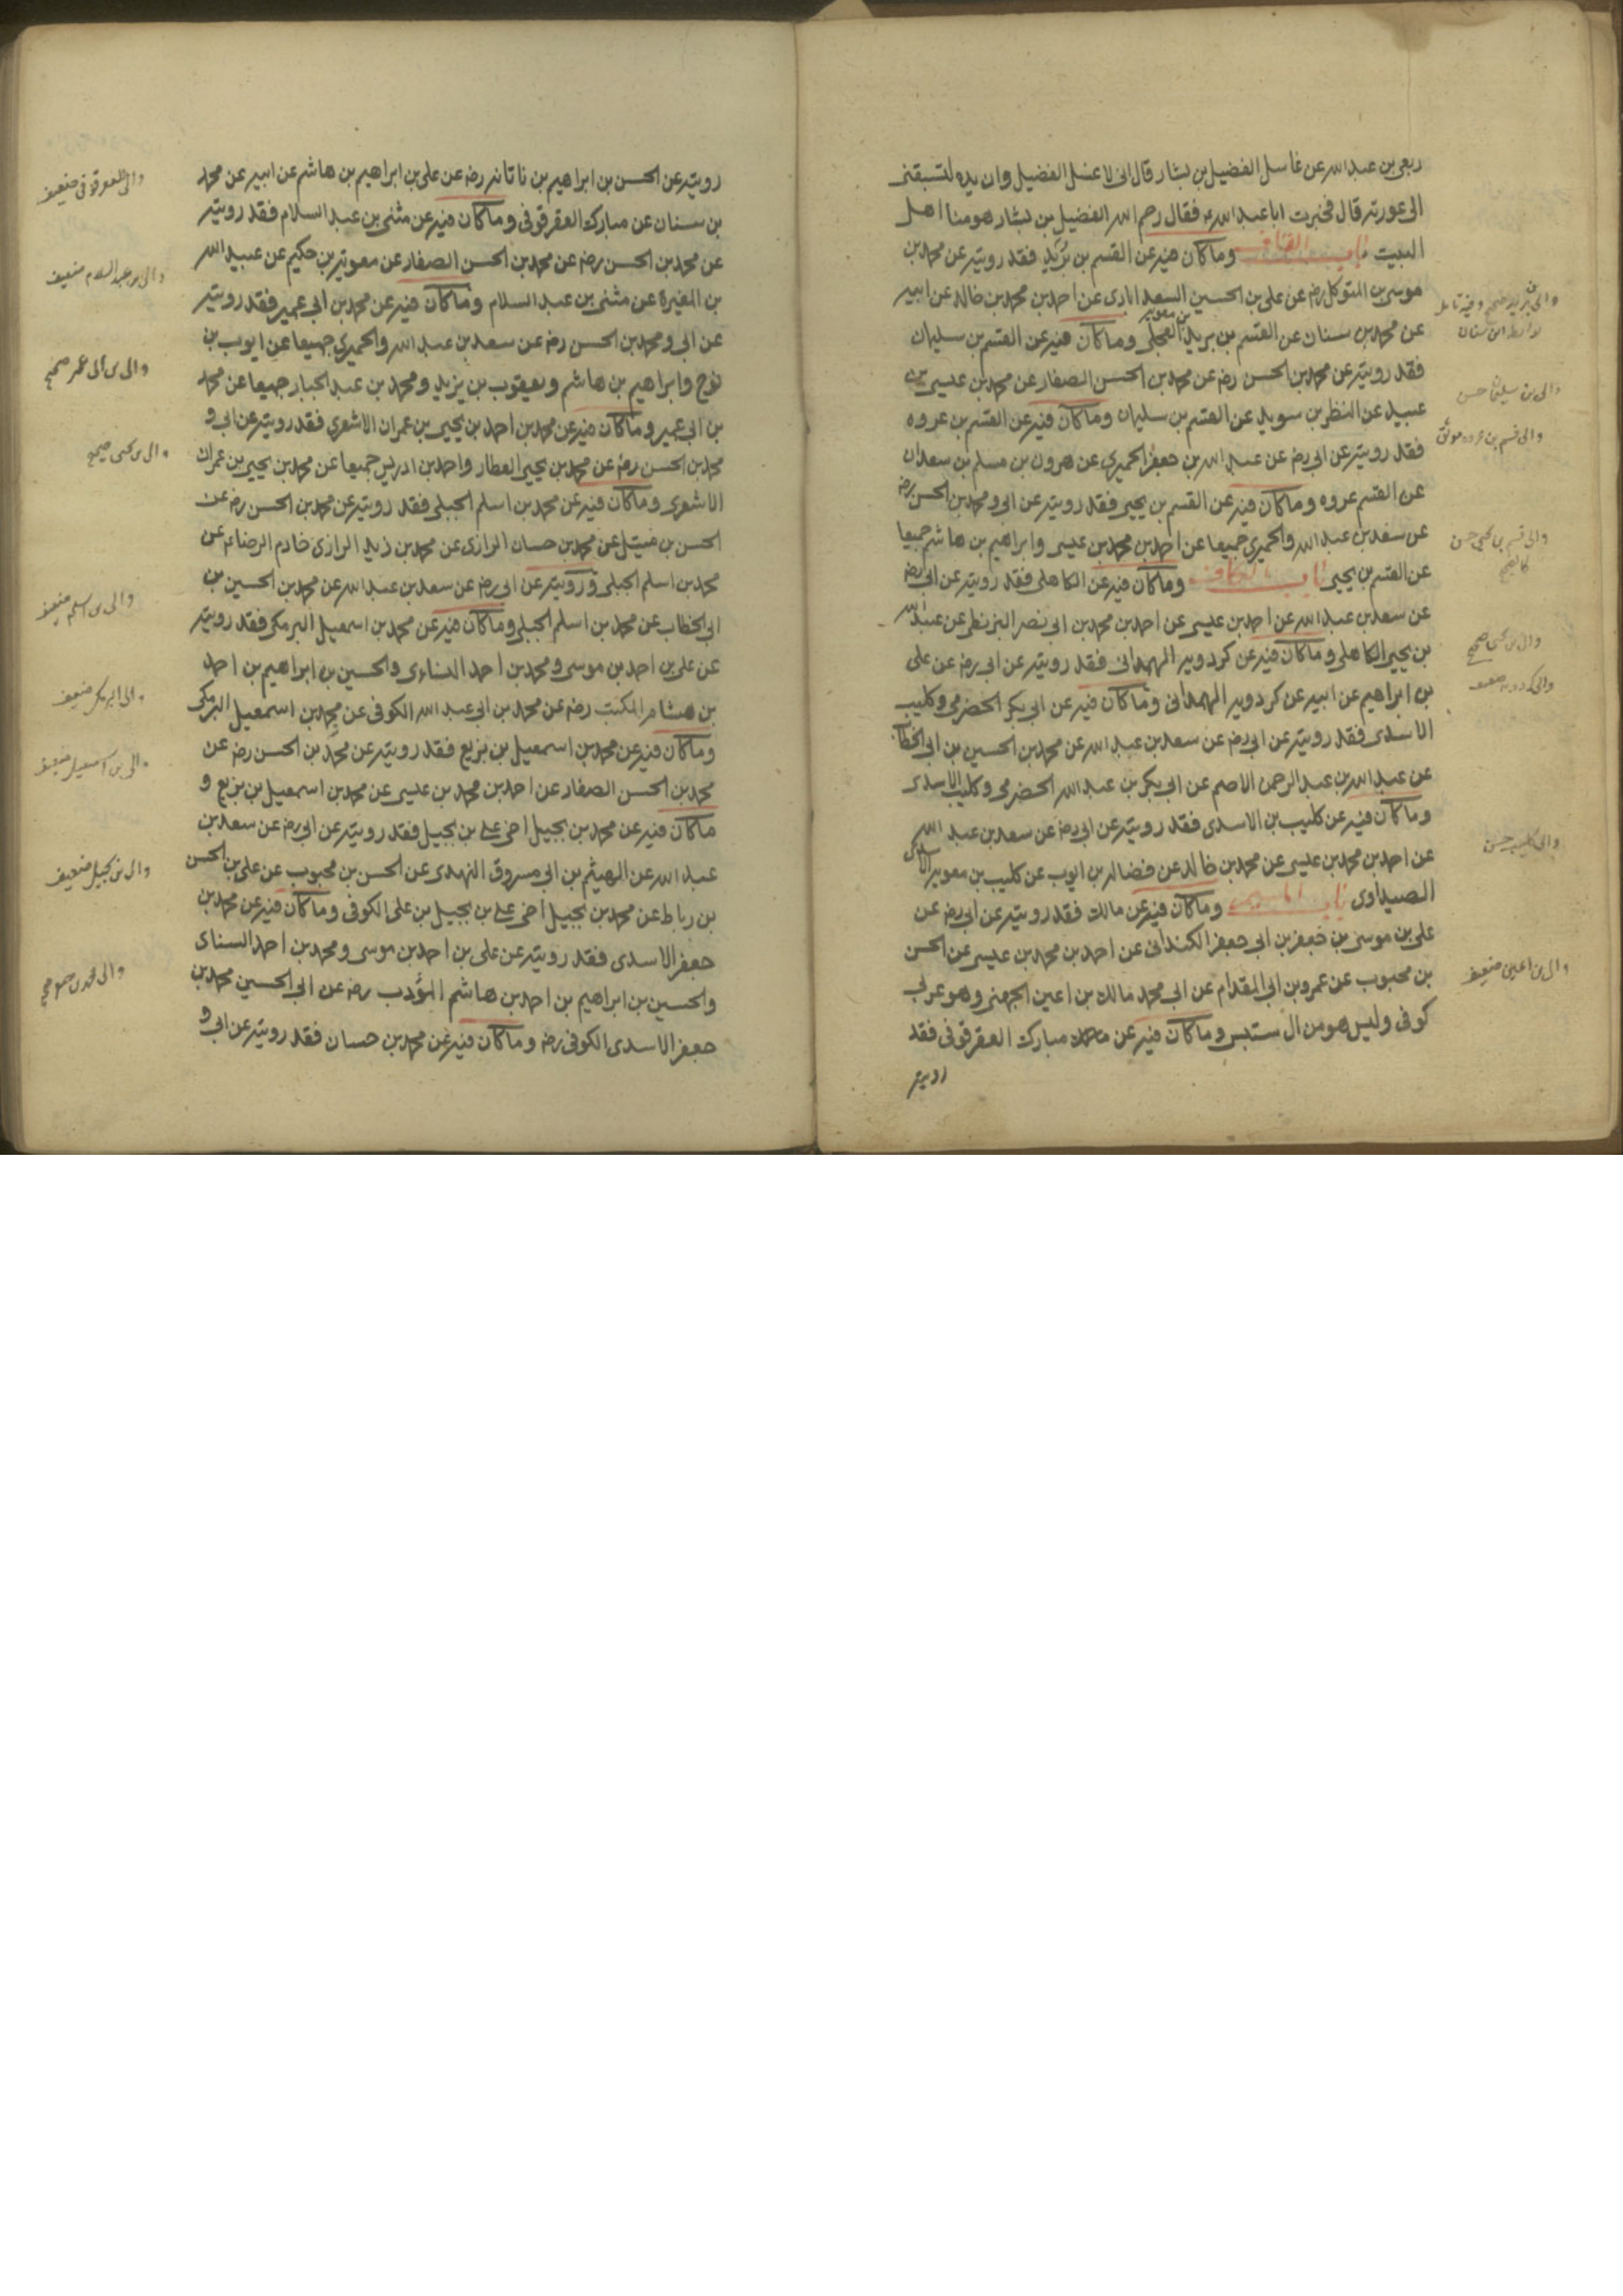 ربعي بن عبد الله عن غاسل الفضيل بن يسار قال اني لاغسل الفضيل وان يده لتسبقني
الى عورته قال فخبرت ابا عبد الله ع فقال رحم الله الفضيل بن يسار هو منا اهل
البيت باب القاف وما كان فيه عن القسم بن بريد فقد رويته عن محمد بن
موسى بن المتوكل رضه عن علي بن الحسين السعد ابادي عن احمد بن محمد بن خالد عن ابيه
عن محمد بن سنان عن القسم بن بريد بن معويه العجلي وما كان فيه عن القسم بن سليمان
فقد رويته عن محمد بن الحسن رضه عن محمد بن الحسن الصفار عن محمد بن عيسى بن
عبيد عن النظر بن سويد عن القسم بن سليمان وما كان فيه عن القسم بن عروه
فقد رويته عن ابي رضه عن عبد الله بن جعفر الحميري عن هرون بن مسلم بن سعدان
عن القسم عروه وما كان فيه عن القسم بن يحيى فقد رويته عن ابي ومحمد بن الحسن رضه
عن سعد بن عبد الله والحميري جميعا عن احمد بن محمد بن عيسى وابراهيم بن هاشم جميعا
عن القسم بن يحيى باب الكاف وما كان فيه عن الكاهلي فقد رويته عن ابي رضه
عن سعد بن عبد الله عن احمد بن عيسى عن احمد بن محمد بن ابي نصر البزنطي عن عبد الله
بن يحيى الكاهلي وما كان فيه عن كردويه الهمداني فقد رويته عن ابي رضه عن علي
بن ابراهيم عن ابيه عن كردويه الهمداني وما كان فيه عن ابي بكر الحضرمي وكليب
الاسدي فقد رويته عن ابي رضه عن سعد بن عبد الله عن محمد بن الحسين بن ابي الخطاب
عن عبد الله بن عبد الرحمن الاصم عن ابي بكر بن عبد الله الحضرمي وكليب الاسدي
وما كان فيه عن كليب بن الاسدي فقد رويته عن ابي رضه عن سعد بن عبد الله
عن احمد بن محمد بن عيسى عن محمد بن خالد عن فضاله بن ايوب عن كليب بن معويه الاسدي
الصيداوي باب الميم وما كان فيه عن مالك فقد رويته عن ابي رضه عن
علي بن موسى بن جعفر بن ابي جعفر الكنداني عن احمد بن محمد بن عيسى عن الحسن
بن محبوب عن عمرو بن ابي المقدام عن ابي محمد مالك بن اعين الجهني وهو عربي
كوفي وليس هو من ال سنسن وما كان فيه عن مبارك العقرقوفي فقد
رويته
والى بن بريد صحيح وفيه تامل
بواسطة ابن سنان
والى بن سليمان حسن
والى قسم بن عروه موثق
والى قسم بن يحيى حسن
كالصحيح
والى بن يحيى صحيح
والى كردويه ضعيف
والى كليب حسن
والى بن اعين ضعيف
رويته عن الحسن بن ابراهيم بن ناتانه رضه عن علي بن ابراهيم بن هاشم عن ابيه عن محمد
بن سنان عن مبارك العقرقوفي وما كان فيه عن مثنى بن عبد السلام فقد رويته
عن محمد بن الحسن رضه عن محمد بن الحسن الصفار عن معويه بن حكيم عن عبد الله
بن المغيرة عن مثنى بن عبد السلام وما كان فيه عن محمد بن ابي عمير فقد رويته
عن ابي ومحمد بن الحسن رضه عن سعد بن عبد الله والحميري جميعا عن ايوب بن
نوح وابراهيم بن هاشم ويعقوب بن يزيد ومحمد بن عبد الجبار جميعا عن محمد
بن ابي عمير وما كان فيه عن محمد بن احمد بن يحيى بن عمران الاشعري فقد رويته عن ابي و
محمد بن الحسن رضه عن محمد بن يحيى العطار واحمد بن ادريس جميعا عن محمد بن يحيى بن عمران
الاشعري وما كان فيه عن محمد بن اسلم الجبلي فقد رويته عن محمد بن الحسن رضه عن
الحسن بن متيل عن محمد بن حسان الرازي عن محمد بن زيد الرازي خادم الرضا ع عن
محمد بن اسلم الجبلي ورويته عن ابي رضه عن سعد بن عبد الله عن محمد بن الحسين بن
ابي الخطاب عن محمد بن اسلم الجبلي وما كان فيه عن محمد بن اسمعيل البرمكي فقد رويته
عن علي بن احمد بن موسى ومحمد بن احمد السناءي والحسين بن ابراهيم بن احمد
بن هشام المكتب رضه عن محمد بن ابي عبد الله الكوفي عن محمد بن اسمعيل البرمكي
وما كان فيه عن محمد بن اسمعيل بن بزيع فقد رويته عن محمد بن الحسن رضه عن
محمد بن الحسن الصفار عن احمد بن محمد بن عيسى عن محمد بن اسمعيل بن بزيع و
ما كان فيه عن محمد بن بجيل اخي علي بن بجيل فقد رويته عن ابي رضه عن سعد بن
عبد الله عن الهيثم بن ابي مسروق النهدي عن الحسن بن محبوب عن علي بن الحسن
بن رباط عن محمد بن بجيل اخي علي بن بجيل بن علي الكوفي وما كان فيه عن محمد بن
جعفر الاسدي فقد رويته عن علي بن احمد بن موسى ومحمد بن احمد السناى
والحسين بن ابراهيم بن احمد بن هاشم المؤدب رضه عن ابي الحسين محمد بن
جعفر الاسدي الكوفي رضه وما كان فيه عن محمد بن حسان فقد رويته عن ابي و
والى العقرقوفي ضعيف
والى بن عبد السلام ضعيف
والى بن ابي عمير صحيح
والى بن يحيى صحيح
والى بن اسلم ضعيف
والى البرمكي ضعيف
والى بن اسمعيل ضعيف
والى بن بجيل ضعيف
والى محمد بن